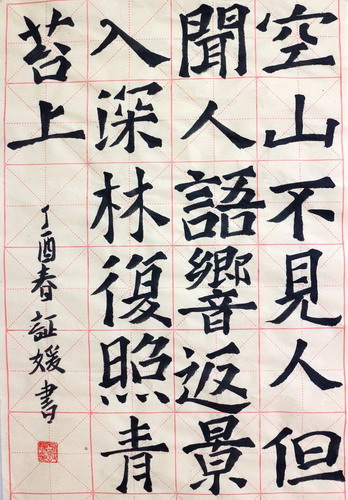 空山不見人但
聞人語響返景
入深林復照青
苔上
丁酉春証媛書